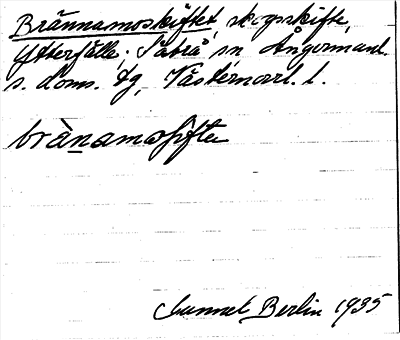 Brännamoskiftet, skogsskifte,
Ytterfälle, Säbrå sn Ångermanl.
s. doms. tg, Västernorrl. l.
brànamoſifte
Gunnel Berlin 1935